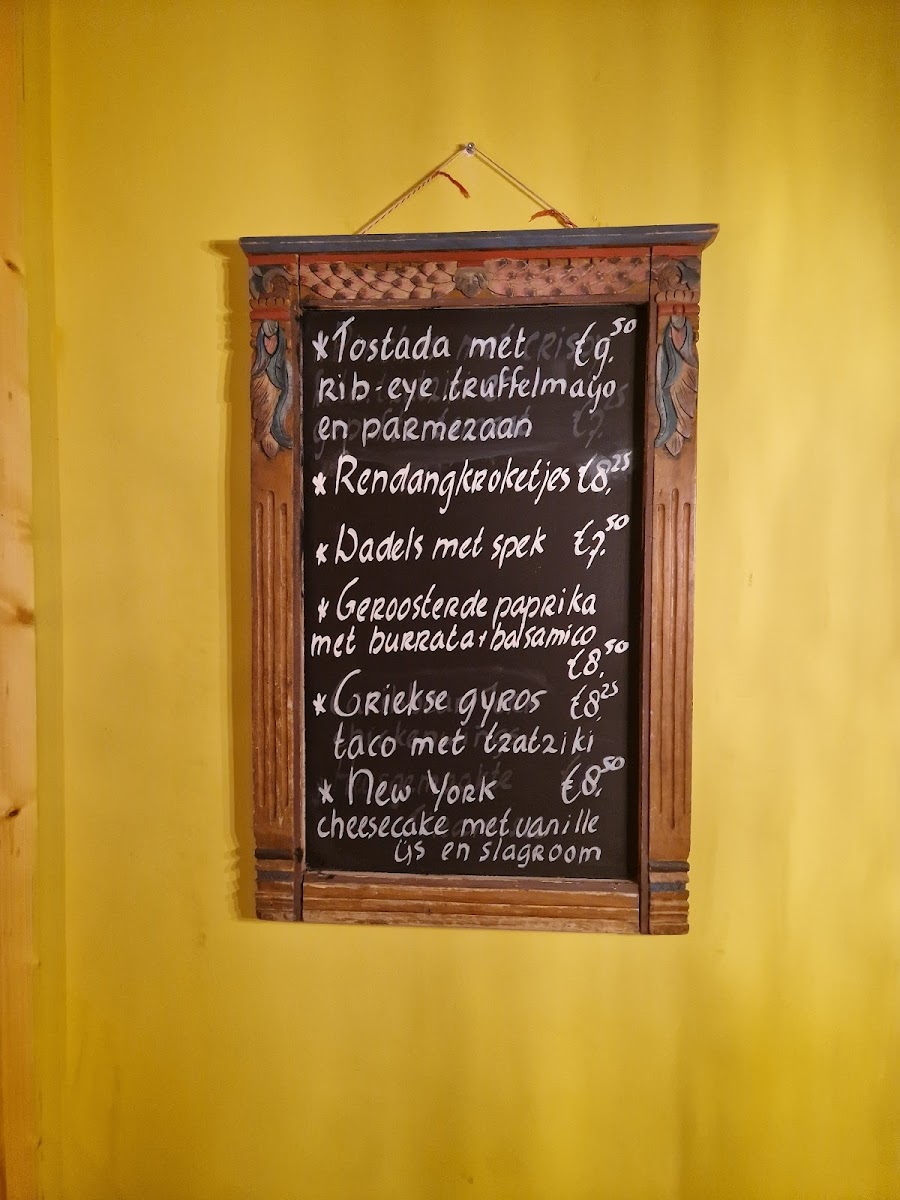 *Tostada met €9,50
rib-eye, truffelmayo
en parmezaan
*Rendangkroketjes €8,25
*Dadels met spek €7,50
*Geroosterde paprika
met burrata + balsamico
€8,50
*Griekse gyros €8,25
taco met tzatziki
*New York €8,50
cheesecake met vanille
ijs en slagroom